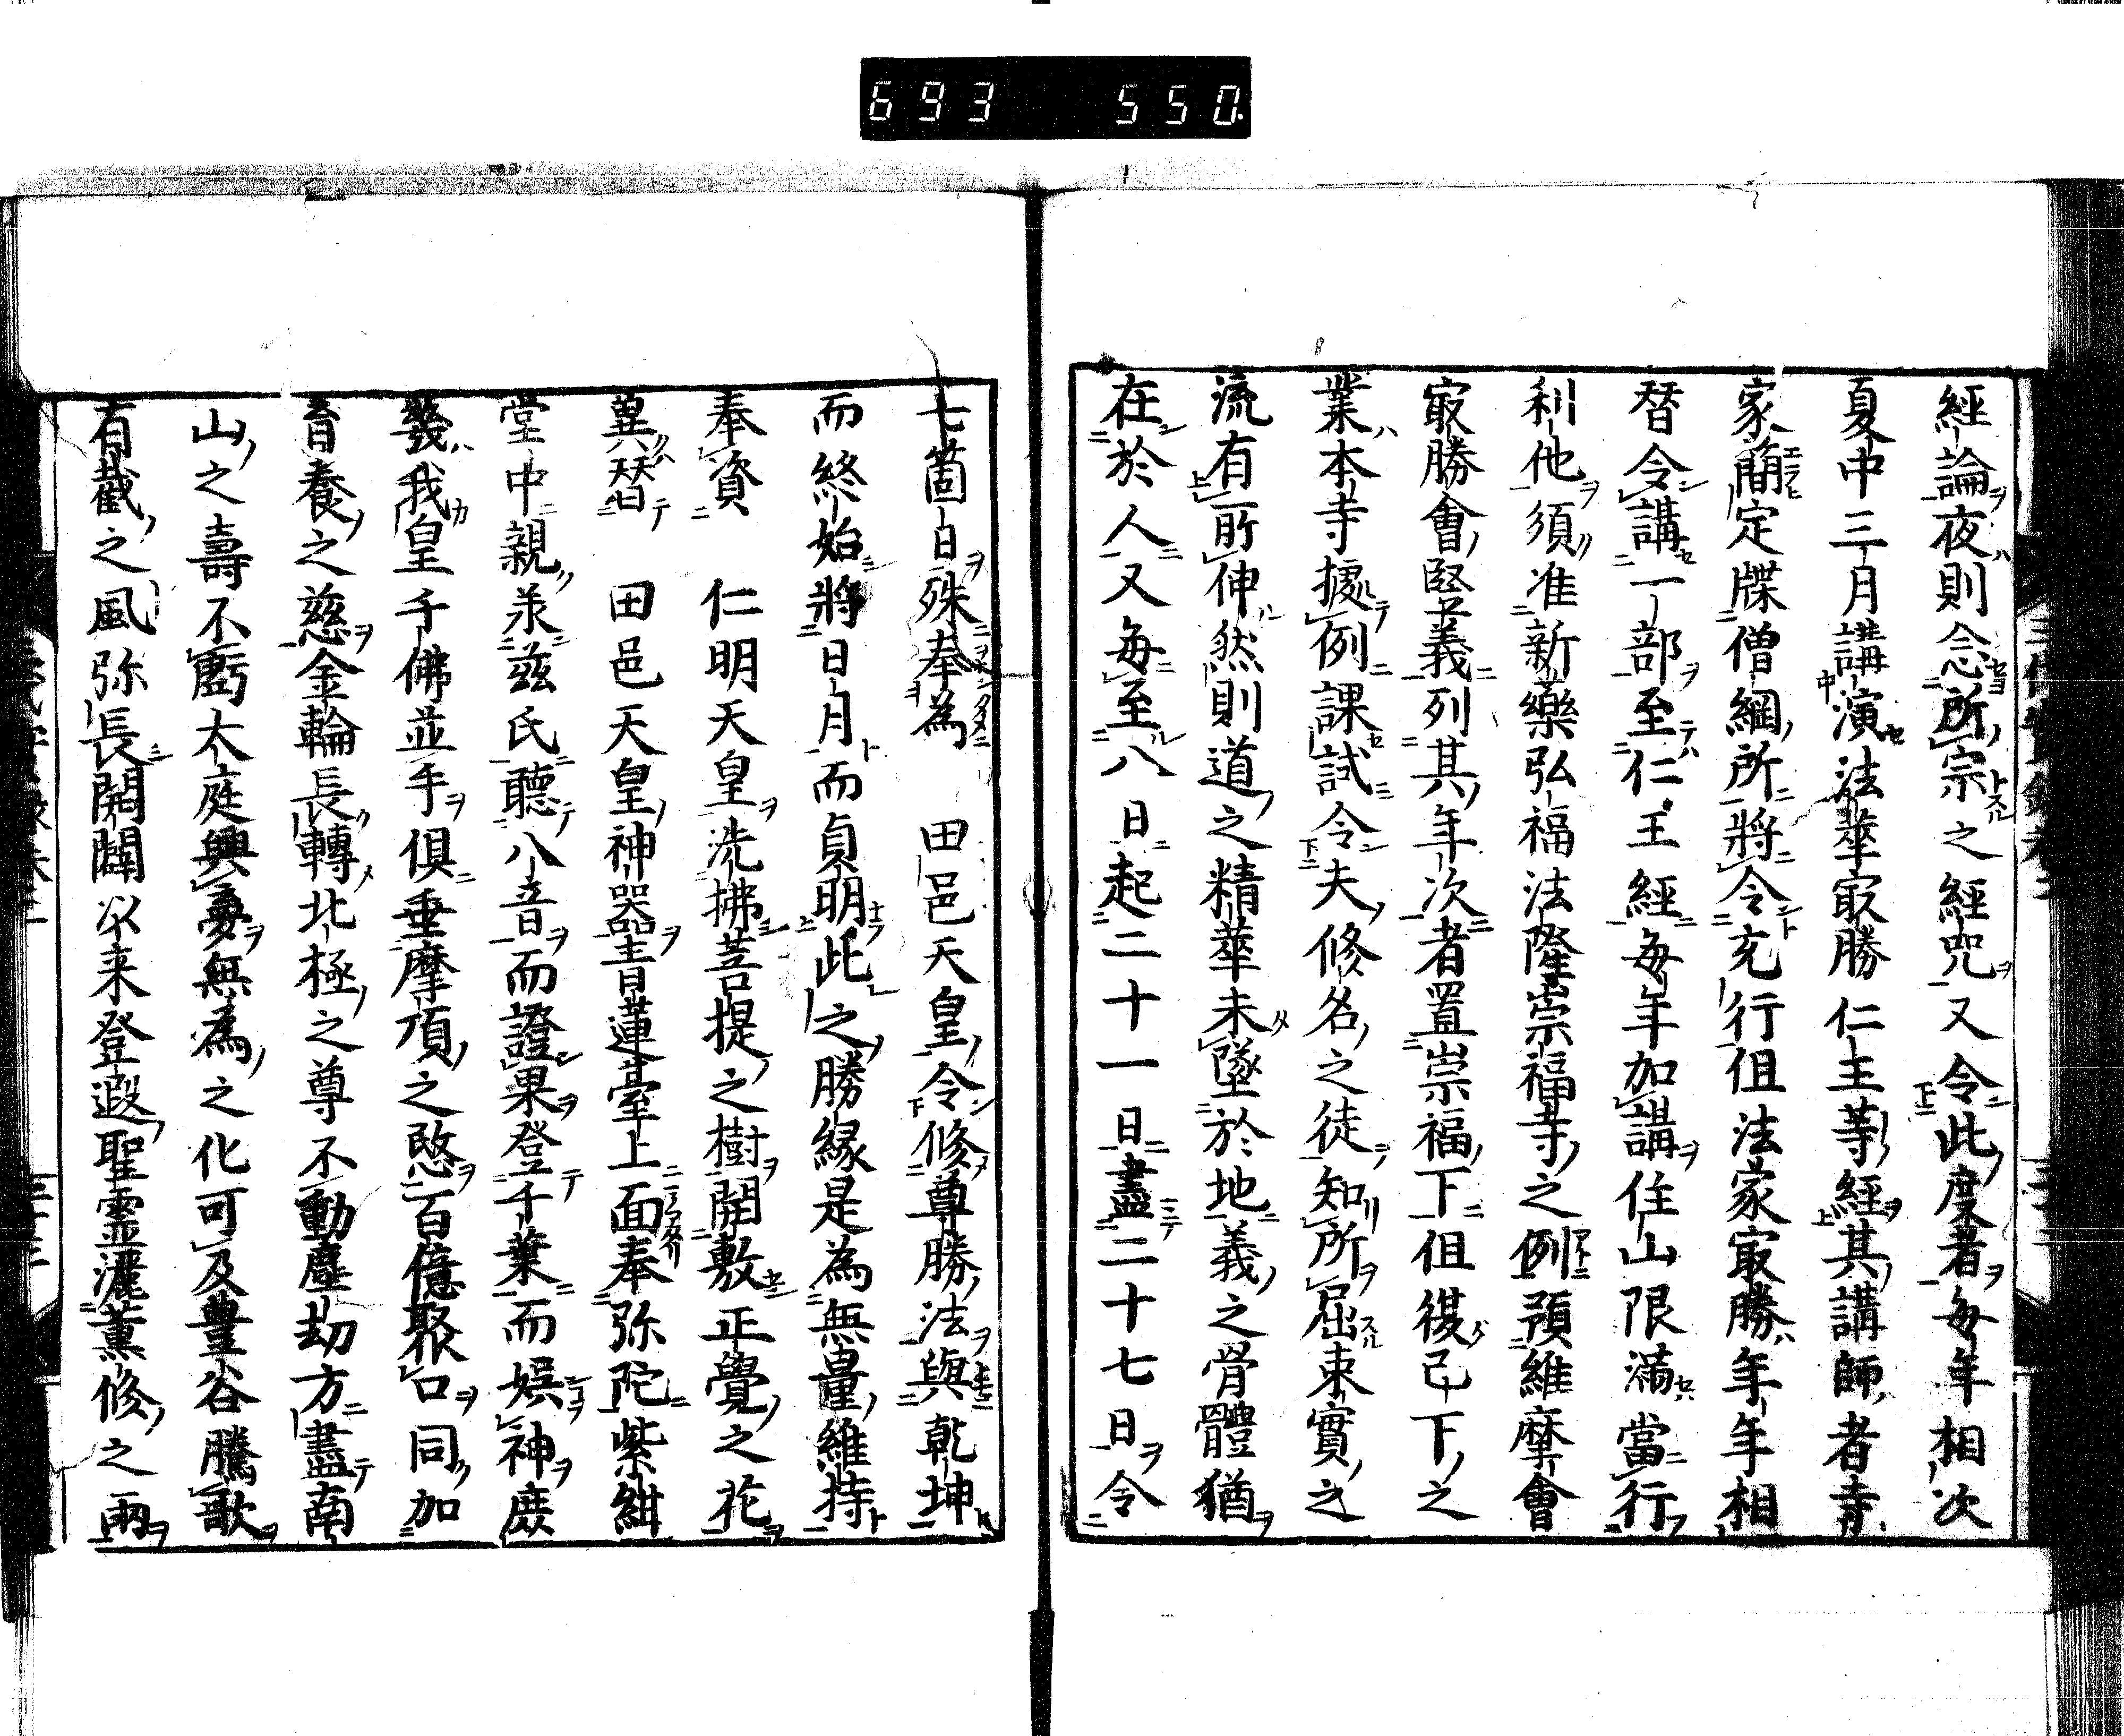 693 550
經論夜則念所宗之經咒又令此度者每年相次
夏中三月講演法華㝡勝仁王等經其講師者寺
家簡定牒僧綱所將令充行但法家㝡勝年年相
替令講一部至仁王經每年加講住山限滿當行
利他須准新藥弘福法隆崇福寺之例預維摩會
㝡勝會竪義列其年次者置崇福下但復己下之
業本寺據例課試令夫修名之徒知所屈束實之
流有所伸然則道之精華未墜於地義之骨體猶
在於人又每至八日起二十一日盡二十七日令
七箇日殊奉為 田邑天皇令修尊勝法與乾坤
而終始將日月而貞明此之勝緣是為無量維持
奉資 仁明天皇洗拂菩提之樹開敷正覺之花
冀替 田邑天皇神器青蓮臺上面奉弥陀紫紺
堂中親承茲氏聽八音而證果登千葉而娛神庶
幾我皇千佛並手俱垂摩頂之愍百億聚口同加
育養之慈金輪長轉北極之尊不動塵劫方盡南
山之壽不虧太庭興憂無為之化可及豊谷騰歌
有截之風弥長開闢以来登遐聖霊灑薰修之雨